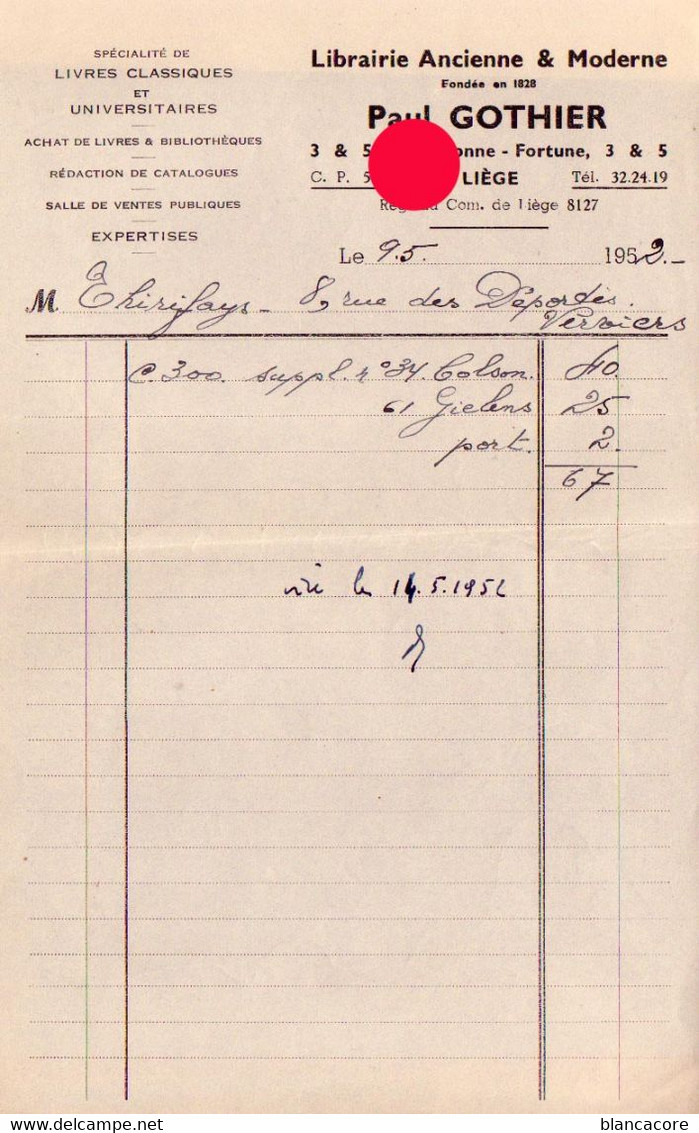 SPÉCIALITÉ DE
LIVRES CLASSIQUES
ET
UNIVERSITAIRES
ACHAT DE LIVRES & BIBLIOTHÈQUES
RÉDACTION DE CATALOGUES
SALLE DE VENTES PUBLIQUES
EXPERTISES
Librairie Ancienne & Moderne
Fondée en 1828
Paul GOTHIER
3 & 5 onne - Fortune, 3 & 5
C. P. 5 LIÈGE Tél. 32.24.19
Com. de Liège 8127
Le 9.5. 1952.-
M. Thirifays - 8, rue des Déportés.
Verviers
C.300. suppl. n° 34. Colson. 40
61 Gielens 25
port. 2.
67
viré le 14.5.1952
delcampe.net
blancacore